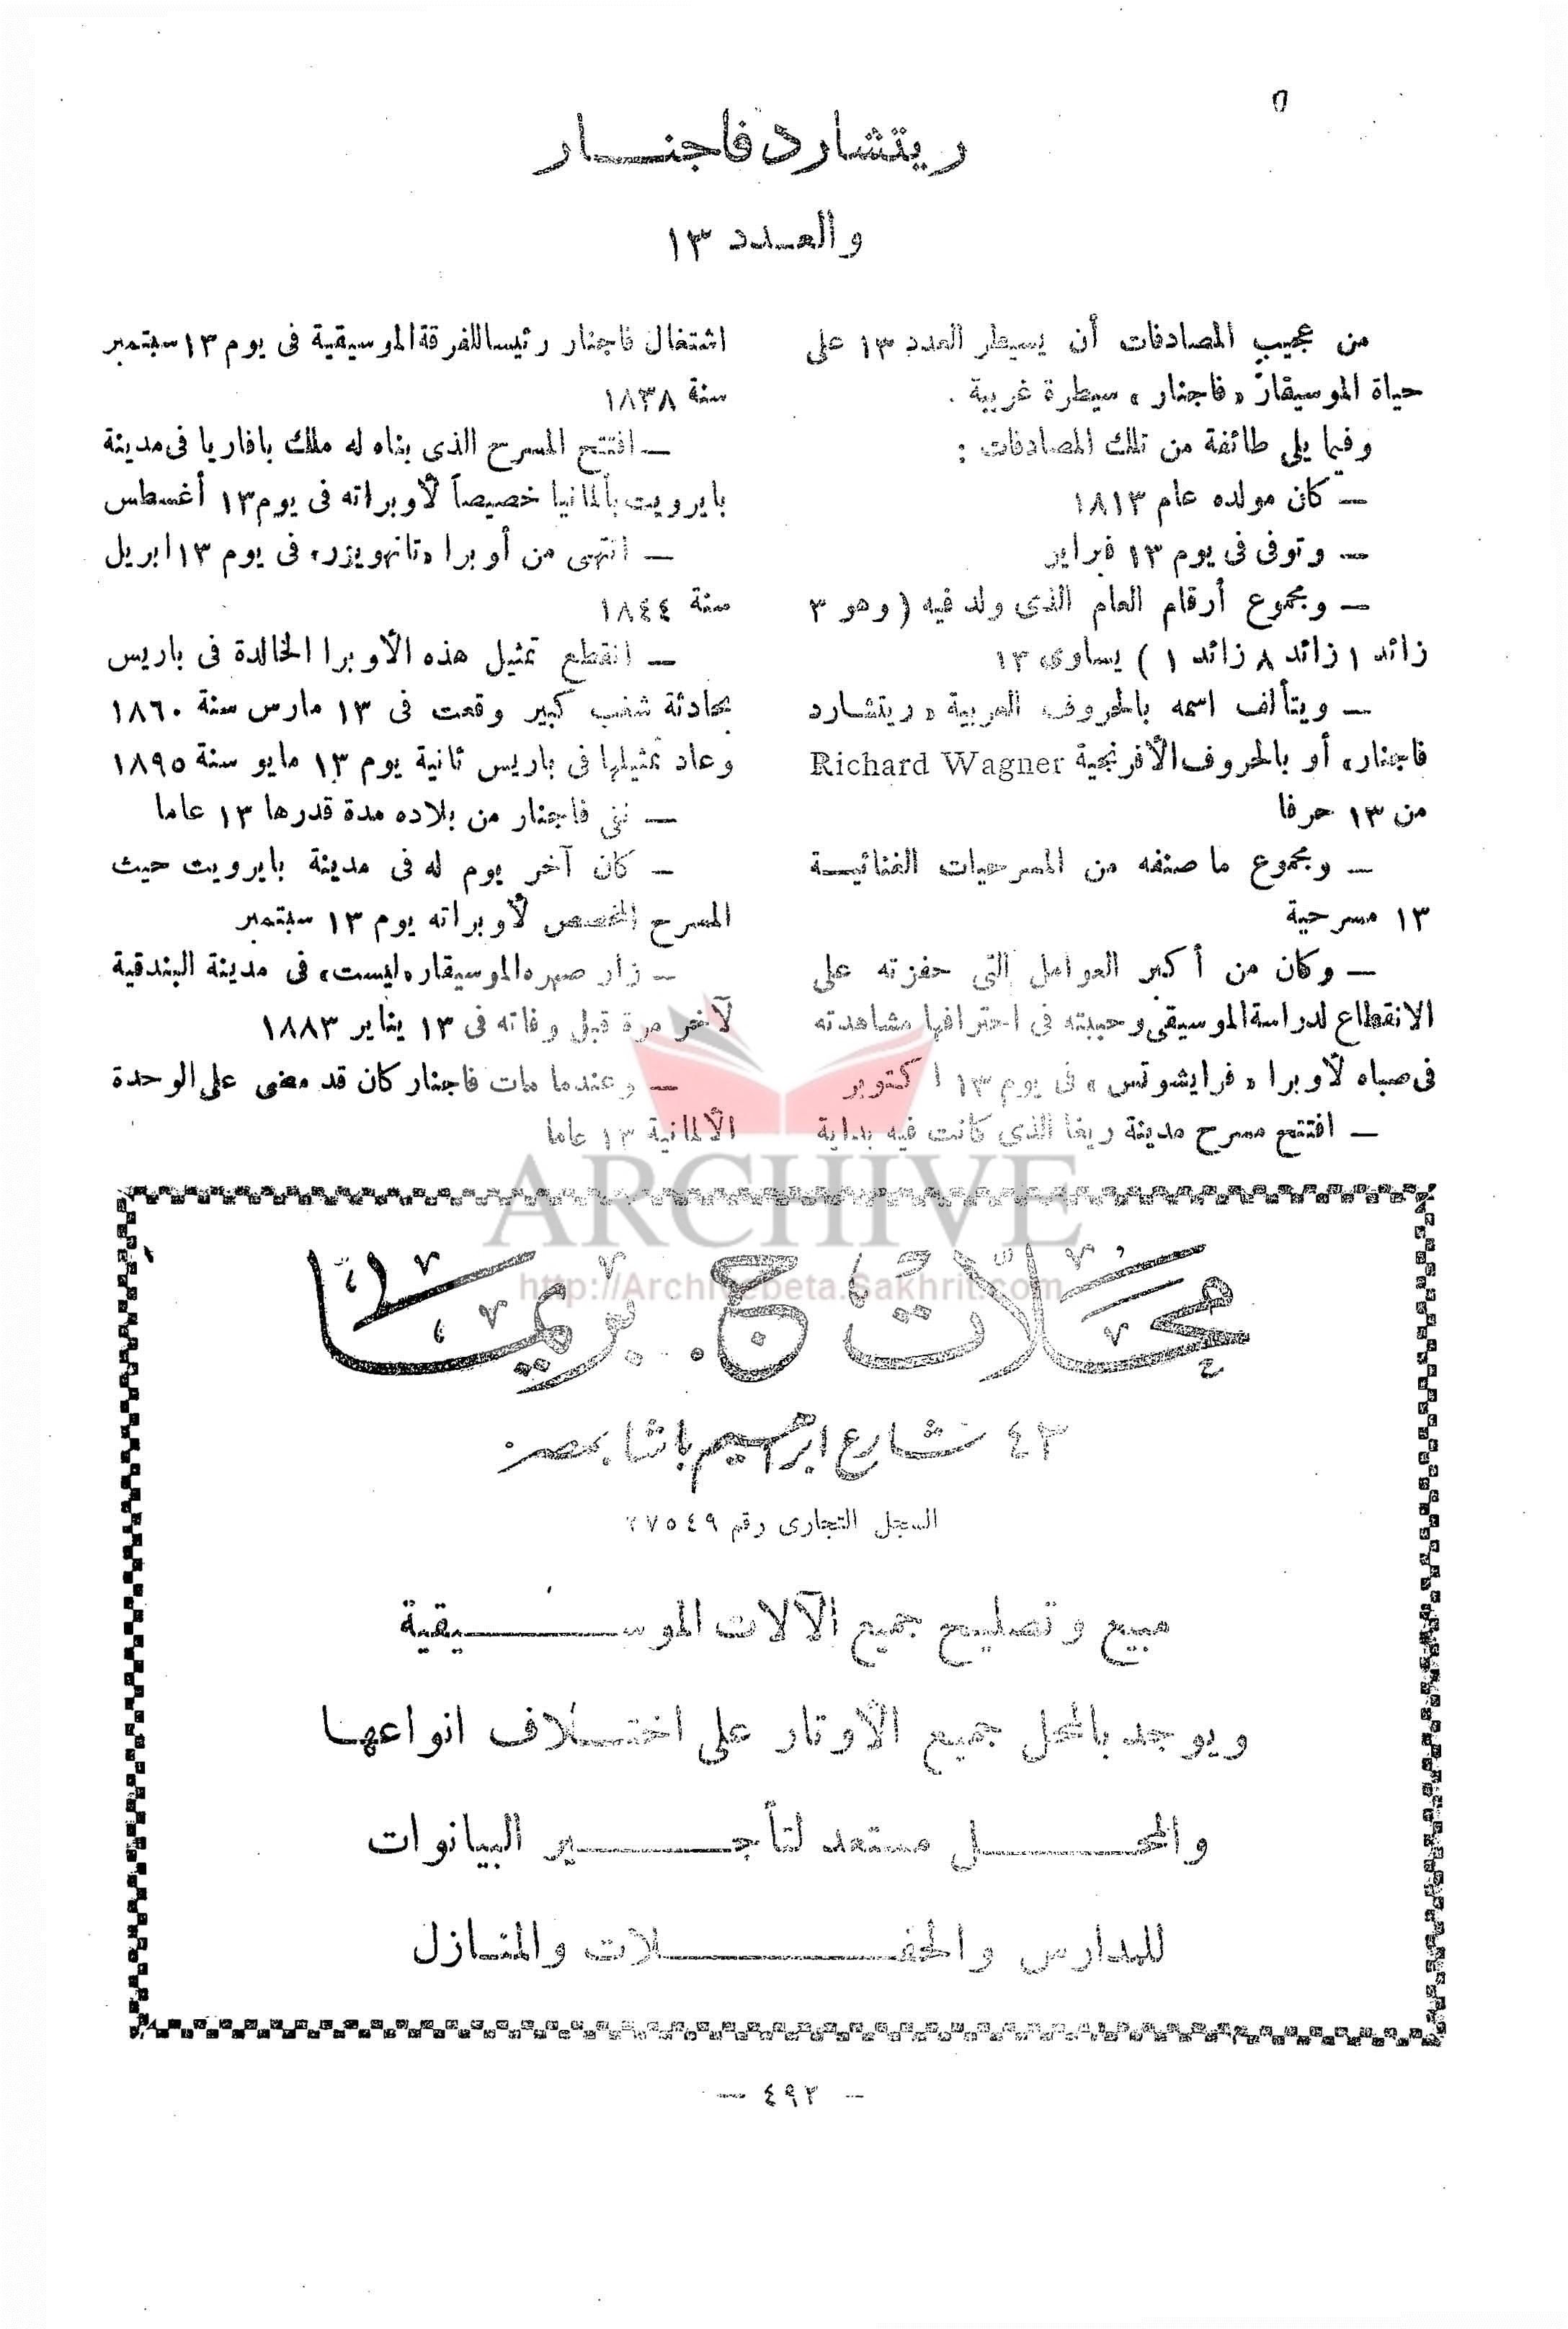 ريتشارد فاجنار
والعدد ١٣
من عجيب المصادفات أن يسيطر العدد ١٣ على
حياة الموسيقار « فاجنار » سيطرة غريبة .
وفيما يلى طائفة من تلك المصادفات :
— كان مولده عام ١٨١٣
— وتوفى فى يوم ١٣ فبراير
— ومجموع أرقام العام الذى ولد فيه ( وهو ٣
زائد ١ زائد ٨ زائد ١ ) يساوى ١٣
— ويتألف اسمه بالحروف العربية « ريتشارد
فاجنار » أو بالحروف الأفرنجية Richard Wagner
من ١٣ حرفا
— ومجموع ما صنفه من المسرحيات الغنائية
١٣ مسرحية
— وكان من أكبر العوامل التى حفزته على
الانقطاع لدراسة الموسيقى وحببته فى احترافها مشاهدته
فى صباه لأوبرا « فرايشوتس » فى يوم ١٣ اكتوبر
— افتتح مسرح مدينة ريغا الذى كانت فيه بداية
اشتغال فاجنار رئيسا للفرقة الموسيقية فى يوم ١٣ سبتمبر
سنة ١٨٣٨
— افتتح المسرح الذى بناه له ملك بافاريا فى مدينة
بايرويت بألمانيا خصيصاً لأوبراته فى يوم ١٣ أغسطس
— انتهى من أوبرا « تانهويزر » فى يوم ١٣ ابريل
سنة ١٨٤٤
— انقطع تمثيل هذه الأوبرا الخالدة فى باريس
بحادثة شغب كبير وقعت فى ١٣ مارس سنة ١٨٦٠
وعاد تمثيلها فى باريس ثانية يوم ١٣ مايو سنة ١٨٩٥
— نفى فاجنار من بلاده مدة قدرها ١٣ عاما
— كان آخر يوم له فى مدينة بايرويت حيث
المسرح المخصص لأوبراته يوم ١٣ سبتمبر
— زار صهره الموسيقار « ليست » فى مدينة البندقية
لآخر مرة قبل وفاته فى ١٣ يناير ١٨٨٣
— وعندما مات فاجنار كان قد مضى على الوحدة
الألمانية ١٣ عاما
ARCHIVE
http://Archivebeta.Sakhrit.com
محلات ج. بريما
٤٣ شارع ابراهيم باشا بمصر
السجل التجارى رقم ٢٧٥٤٩
مبيع وتصليح جميع الآلات الموسيقية
ويوجد بالمحل جميع الأوتار على اختلاف انواعها
والمحل مستعد لتأجير البيانوات
للمدارس والحفلات والمنازل
— ٤٩٢ —